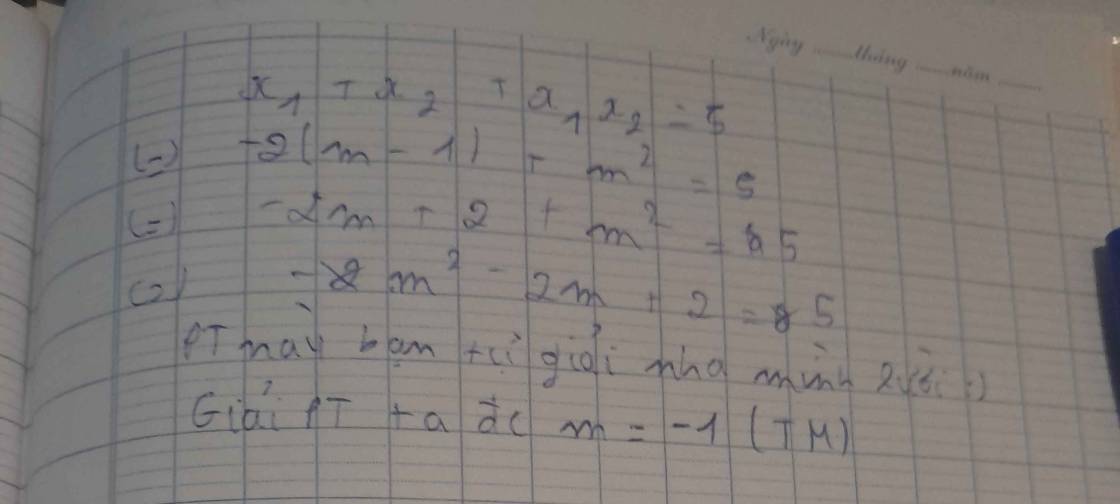 Ngày ...... tháng ...... năm ......
x₁ + x₂ + x₁x₂ = 5
(=) -2(m - 1) + m² = 5
(=) -2m + 2 + m² = 5
(=) m² - 2m + 2 = 5
PT này bạn tự giải nha mình
Giải PT ta đc m = -1 (TM)